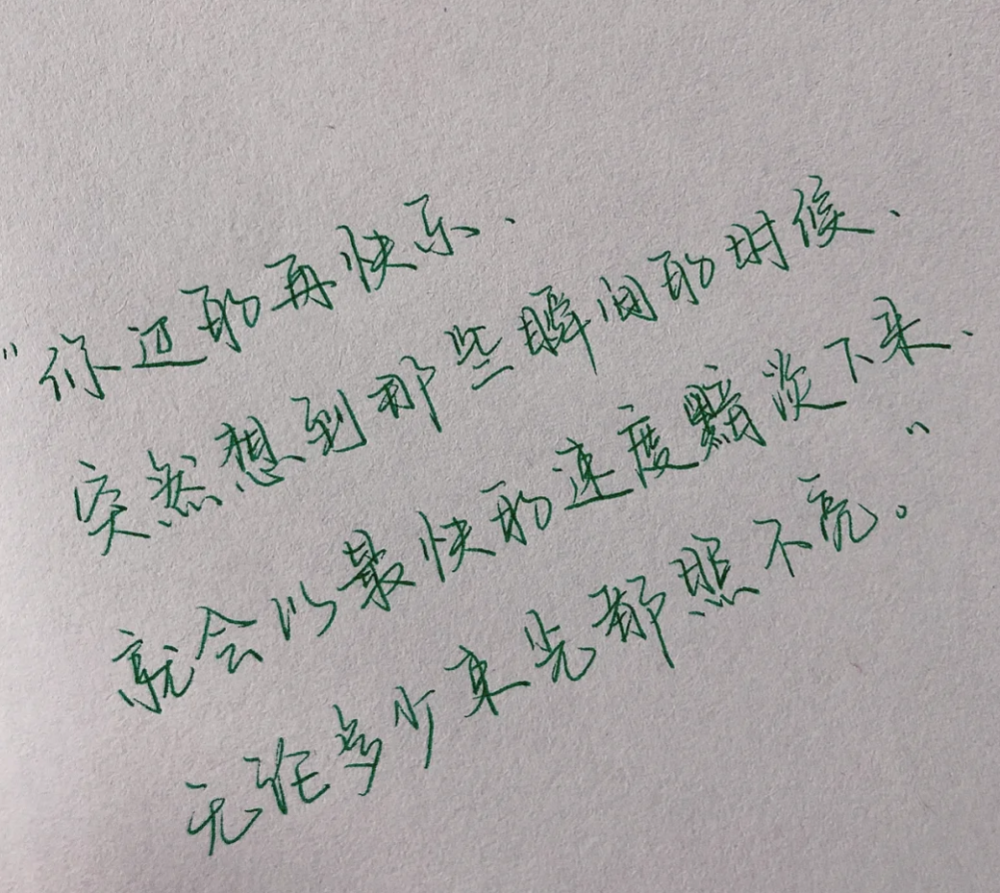 “你过的再快乐、
突然想到那些瞬间的时候、
就会以最快的速度黯淡下来、
无论多少束光都照不亮。”